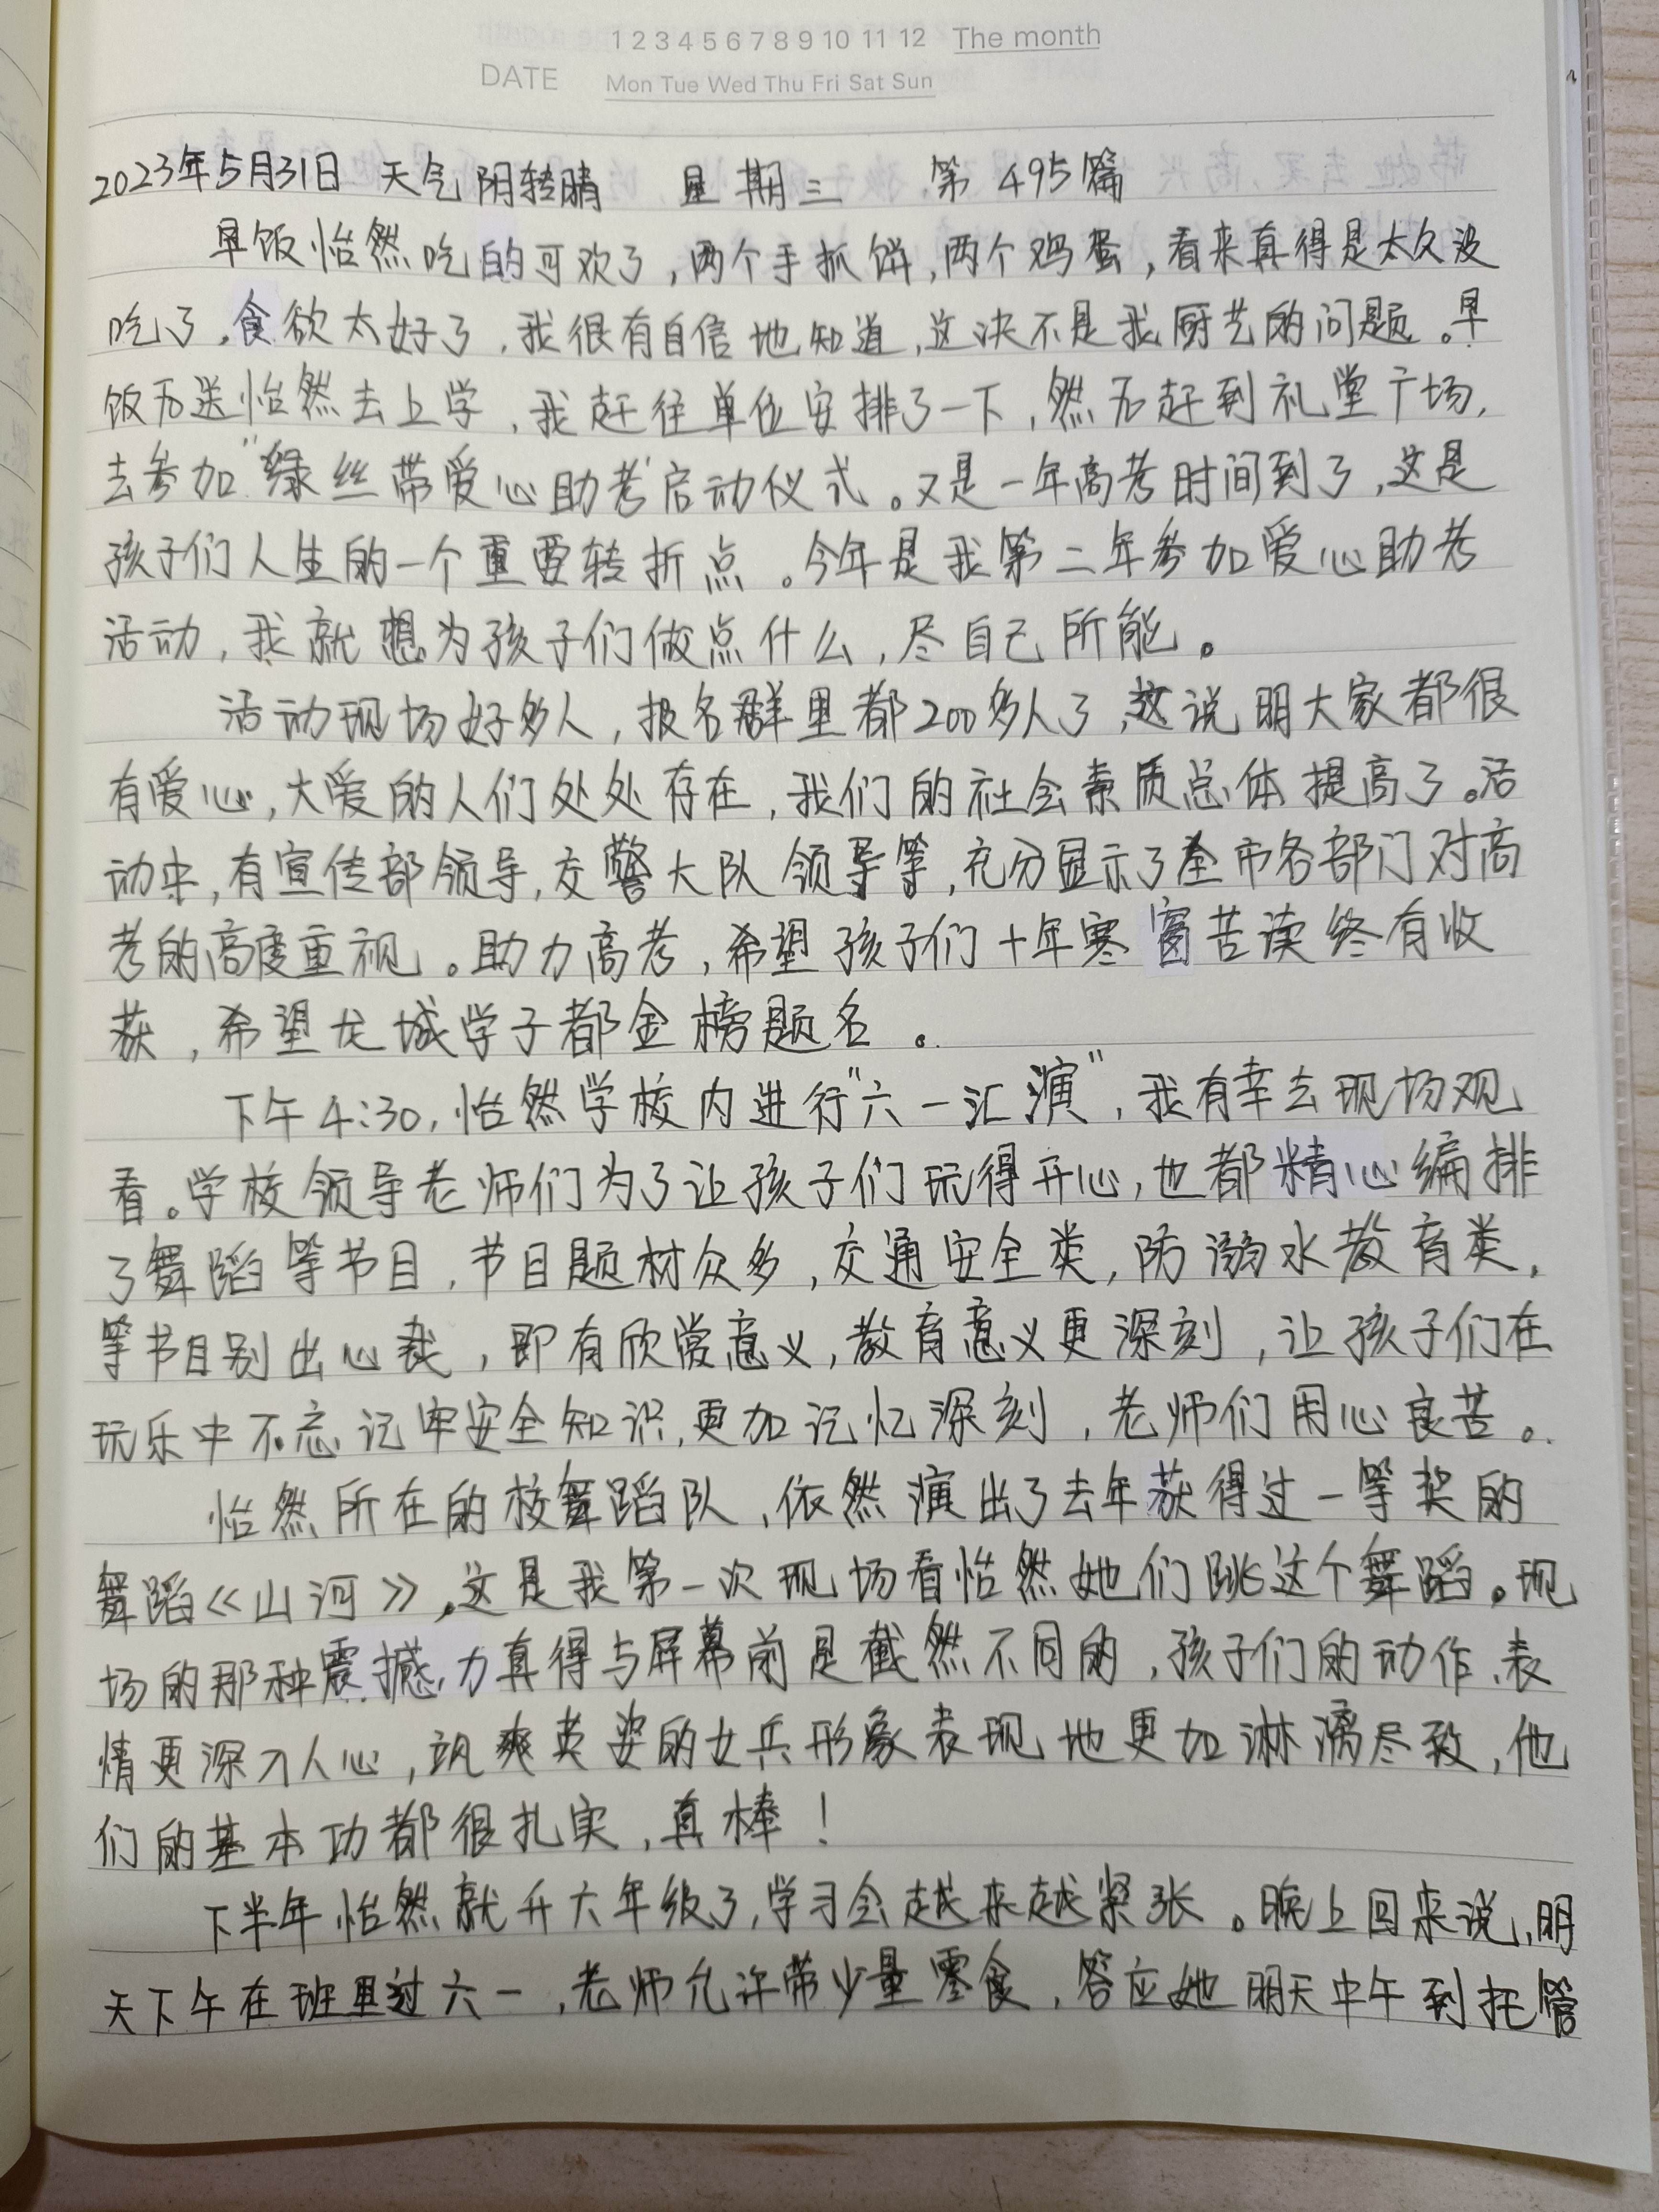 1 2 3 4 5 6 7 8 9 10 11 12 The month
DATE Mon Tue Wed Thu Fri Sat Sun
2023年5月31日 天气阴转晴 星期三 第495篇
早饭怡然吃的可欢了,两个手抓饼,两个鸡蛋,看来真得是太久没
吃了,食欲太好了,我很有自信地知道,这决不是我厨艺的问题。早
饭后送怡然去上学,我赶往单位安排了一下,然后赶到礼堂广场,
去参加“绿丝带爱心助考”启动仪式。又是一年高考时间到了,这是
孩子们人生的一个重要转折点。今年是我第二年参加爱心助考
活动,我就想为孩子们做点什么,尽自己所能。
活动现场好多人,报名群里都200多人了,这说明大家都很
有爱心,大爱的人们处处存在,我们的社会素质总体提高了。活
动中,有宣传部领导,交警大队领导等,充分显示了全市各部门对高
考的高度重视。助力高考,希望孩子们十年寒窗苦读终有收
获,希望龙城学子都金榜题名。
下午4:30,怡然学校内进行“六一汇演”,我有幸去现场观
看。学校领导老师们为了让孩子们玩得开心,也都精心编排
了舞蹈等节目,节目题材众多,交通安全类,防溺水教育类,
等节目别出心裁,即有欣赏意义,教育意义更深刻,让孩子们在
玩乐中不忘记牢安全知识,更加记忆深刻,老师们用心良苦。
怡然所在的校舞蹈队,依然演出了去年获得过一等奖的
舞蹈《山河》,这是我第一次现场看怡然她们跳这个舞蹈。现
场的那种震撼力真得与屏幕前是截然不同的,孩子们的动作、表
情更深入人心,飒爽英姿的女兵形象表现地更加淋漓尽致,他
们的基本功都很扎实,真棒!
下半年怡然就升六年级了,学习会越来越紧张。晚上回来说,明
天下午在班里过六一,老师允许带少量零食,答应她明天中午到托管